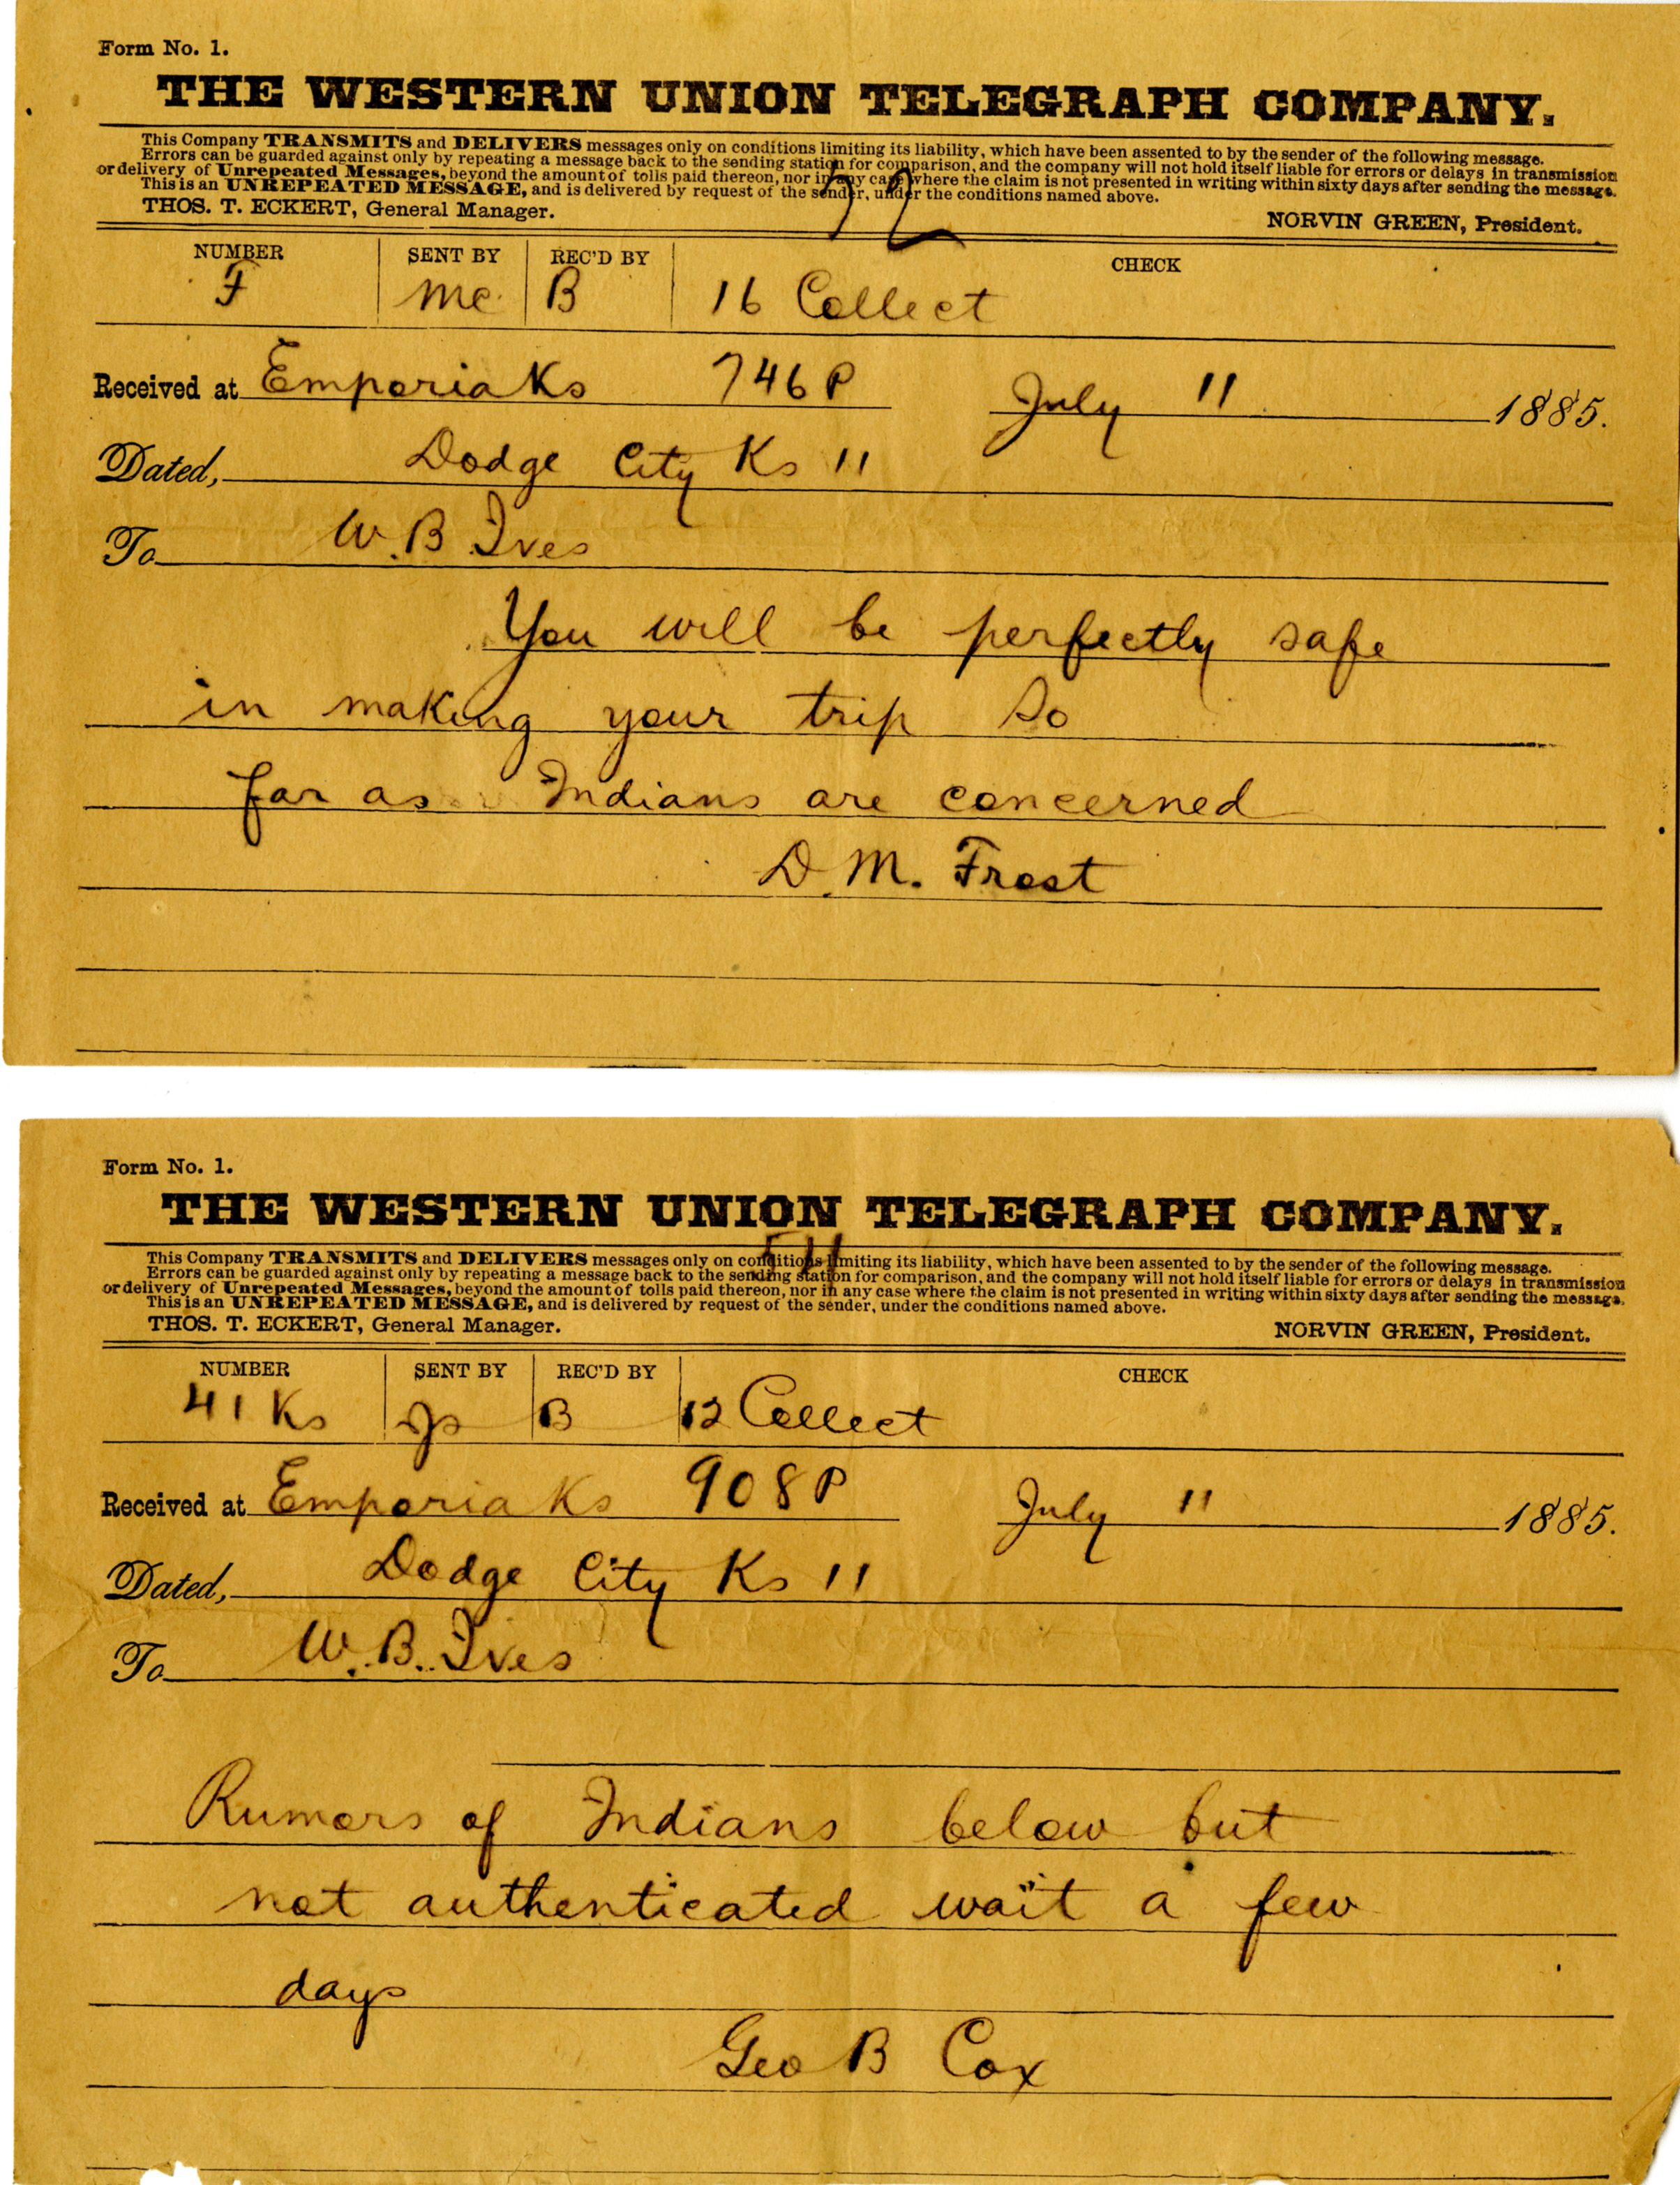 Form No. 1.
THE WESTERN UNION TELEGRAPH COMPANY.
This Company TRANSMITS and DELIVERS messages only on conditions limiting its liability, which have been assented to by the sender of the following message.
Errors can be guarded against only by repeating a message back to the sending station for comparison, and the company will not hold itself liable for errors or delays in transmission
or delivery of Unrepeated Messages, beyond the amount of tolls paid thereon, nor in any case where the claim is not presented in writing within sixty days after sending the message.
This is an UNREPEATED MESSAGE, and is delivered by request of the sender, under the conditions named above.
THOS. T. ECKERT, General Manager. NORVIN GREEN, President.
52
NUMBER SENT BY REC'D BY CHECK
F Mc B 16 Collect
Received at Emporia Ks 746 P July 11 1885.
Dated, Dodge City Ks 11
To W. B Ives
You will be perfectly safe
in making your trip So
far as Indians are concerned
D. M. Frost
Form No. 1.
THE WESTERN UNION TELEGRAPH COMPANY.
This Company TRANSMITS and DELIVERS messages only on conditions limiting its liability, which have been assented to by the sender of the following message.
Errors can be guarded against only by repeating a message back to the sending station for comparison, and the company will not hold itself liable for errors or delays in transmission
or delivery of Unrepeated Messages, beyond the amount of tolls paid thereon, nor in any case where the claim is not presented in writing within sixty days after sending the message.
This is an UNREPEATED MESSAGE, and is delivered by request of the sender, under the conditions named above.
THOS. T. ECKERT, General Manager. NORVIN GREEN, President.
NUMBER SENT BY REC'D BY CHECK
41 Ks B 12 Collect
Received at Emporia Ks 908 P July 11 1885.
Dated, Dodge City Ks 11
To W. B. Ives
Rumors of Indians below but
not authenticated wait a few
days
Geo B Cox